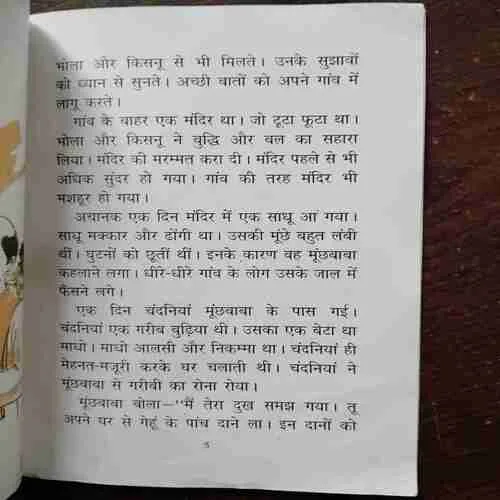 भोला और किसनू से भी मिलते। उनके सुझावों
को ध्यान से सुनते। अच्छी बातों को अपने गांव में
लागू करते।
गांव के बाहर एक मंदिर था। जो टूटा फूटा था।
भोला और किसनू ने बुद्धि और बल का सहारा
लिया। मंदिर की मरम्मत करा दी। मंदिर पहले से भी
अधिक सुंदर हो गया। गांव की तरह मंदिर भी
मशहूर हो गया।
अचानक एक दिन मंदिर में एक साधू आ गया।
साधू मक्कार और ढोंगी था। उसकी मूंछे बहुत लंबी
थीं। घुटनों को छूतीं थीं। इनके कारण वह मूंछबाबा
कहलाने लगा। धीरे-धीरे गांव के लोग उसके जाल में
फँसने लगे।
एक दिन चंदनियां मूंछबाबा के पास गई।
चंदनियां एक गरीब बुढ़िया थी। उसका एक बेटा था
माधो। माधो आलसी और निकम्मा था। चंदनियां ही
मेहनत-मजूरी करके घर चलाती थी। चंदनियां ने
मूंछबाबा से गरीबी का रोना रोया।
मूंछबाबा बोला—"मैं तेरा दुख समझ गया। तू
अपने घर से गेहूं के पांच दाने ला। इन दानों को
5